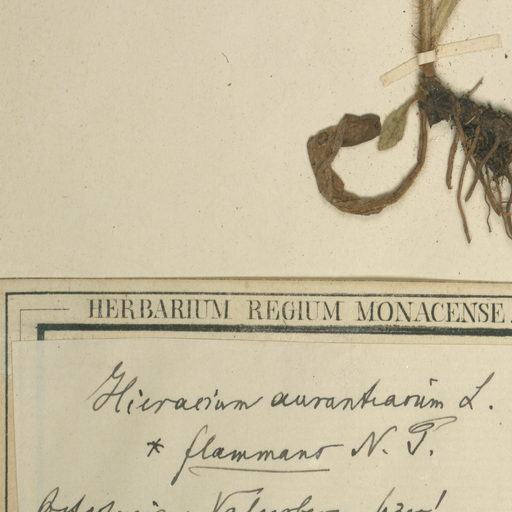 HERBARIUM REGIUM MONACENSE.
Hieracium aurantiacum L.
* flammans N. P.